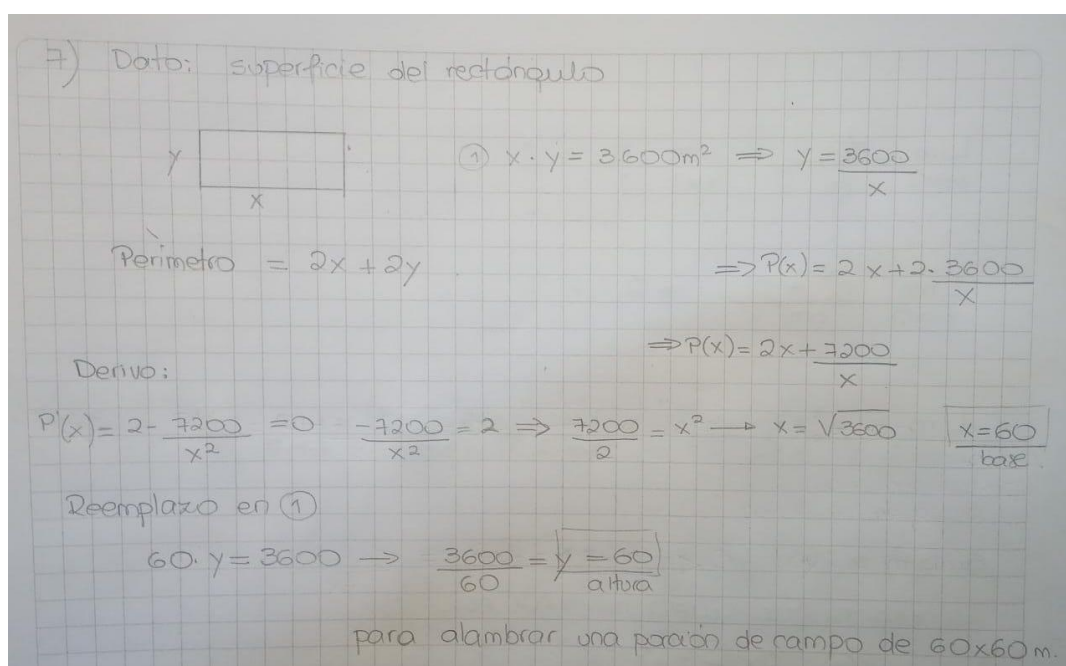 7) Dato: superficie del rectángulo
y ① x · y = 3600m² ⇒ y = 3600/x
x
Perímetro = 2x + 2y ⇒ P(x) = 2x + 2 · 3600/x
⇒ P(x) = 2x + 7200/x
Derivo:
P'(x) = 2 - 7200/x² = 0 -7200/x² = 2 ⇒ 7200/2 = x² → x = √3600 x = 60 base
Reemplazo en ①
60 · y = 3600 → 3600/60 = y = 60 altura
para alambrar una porción de campo de 60x60m.